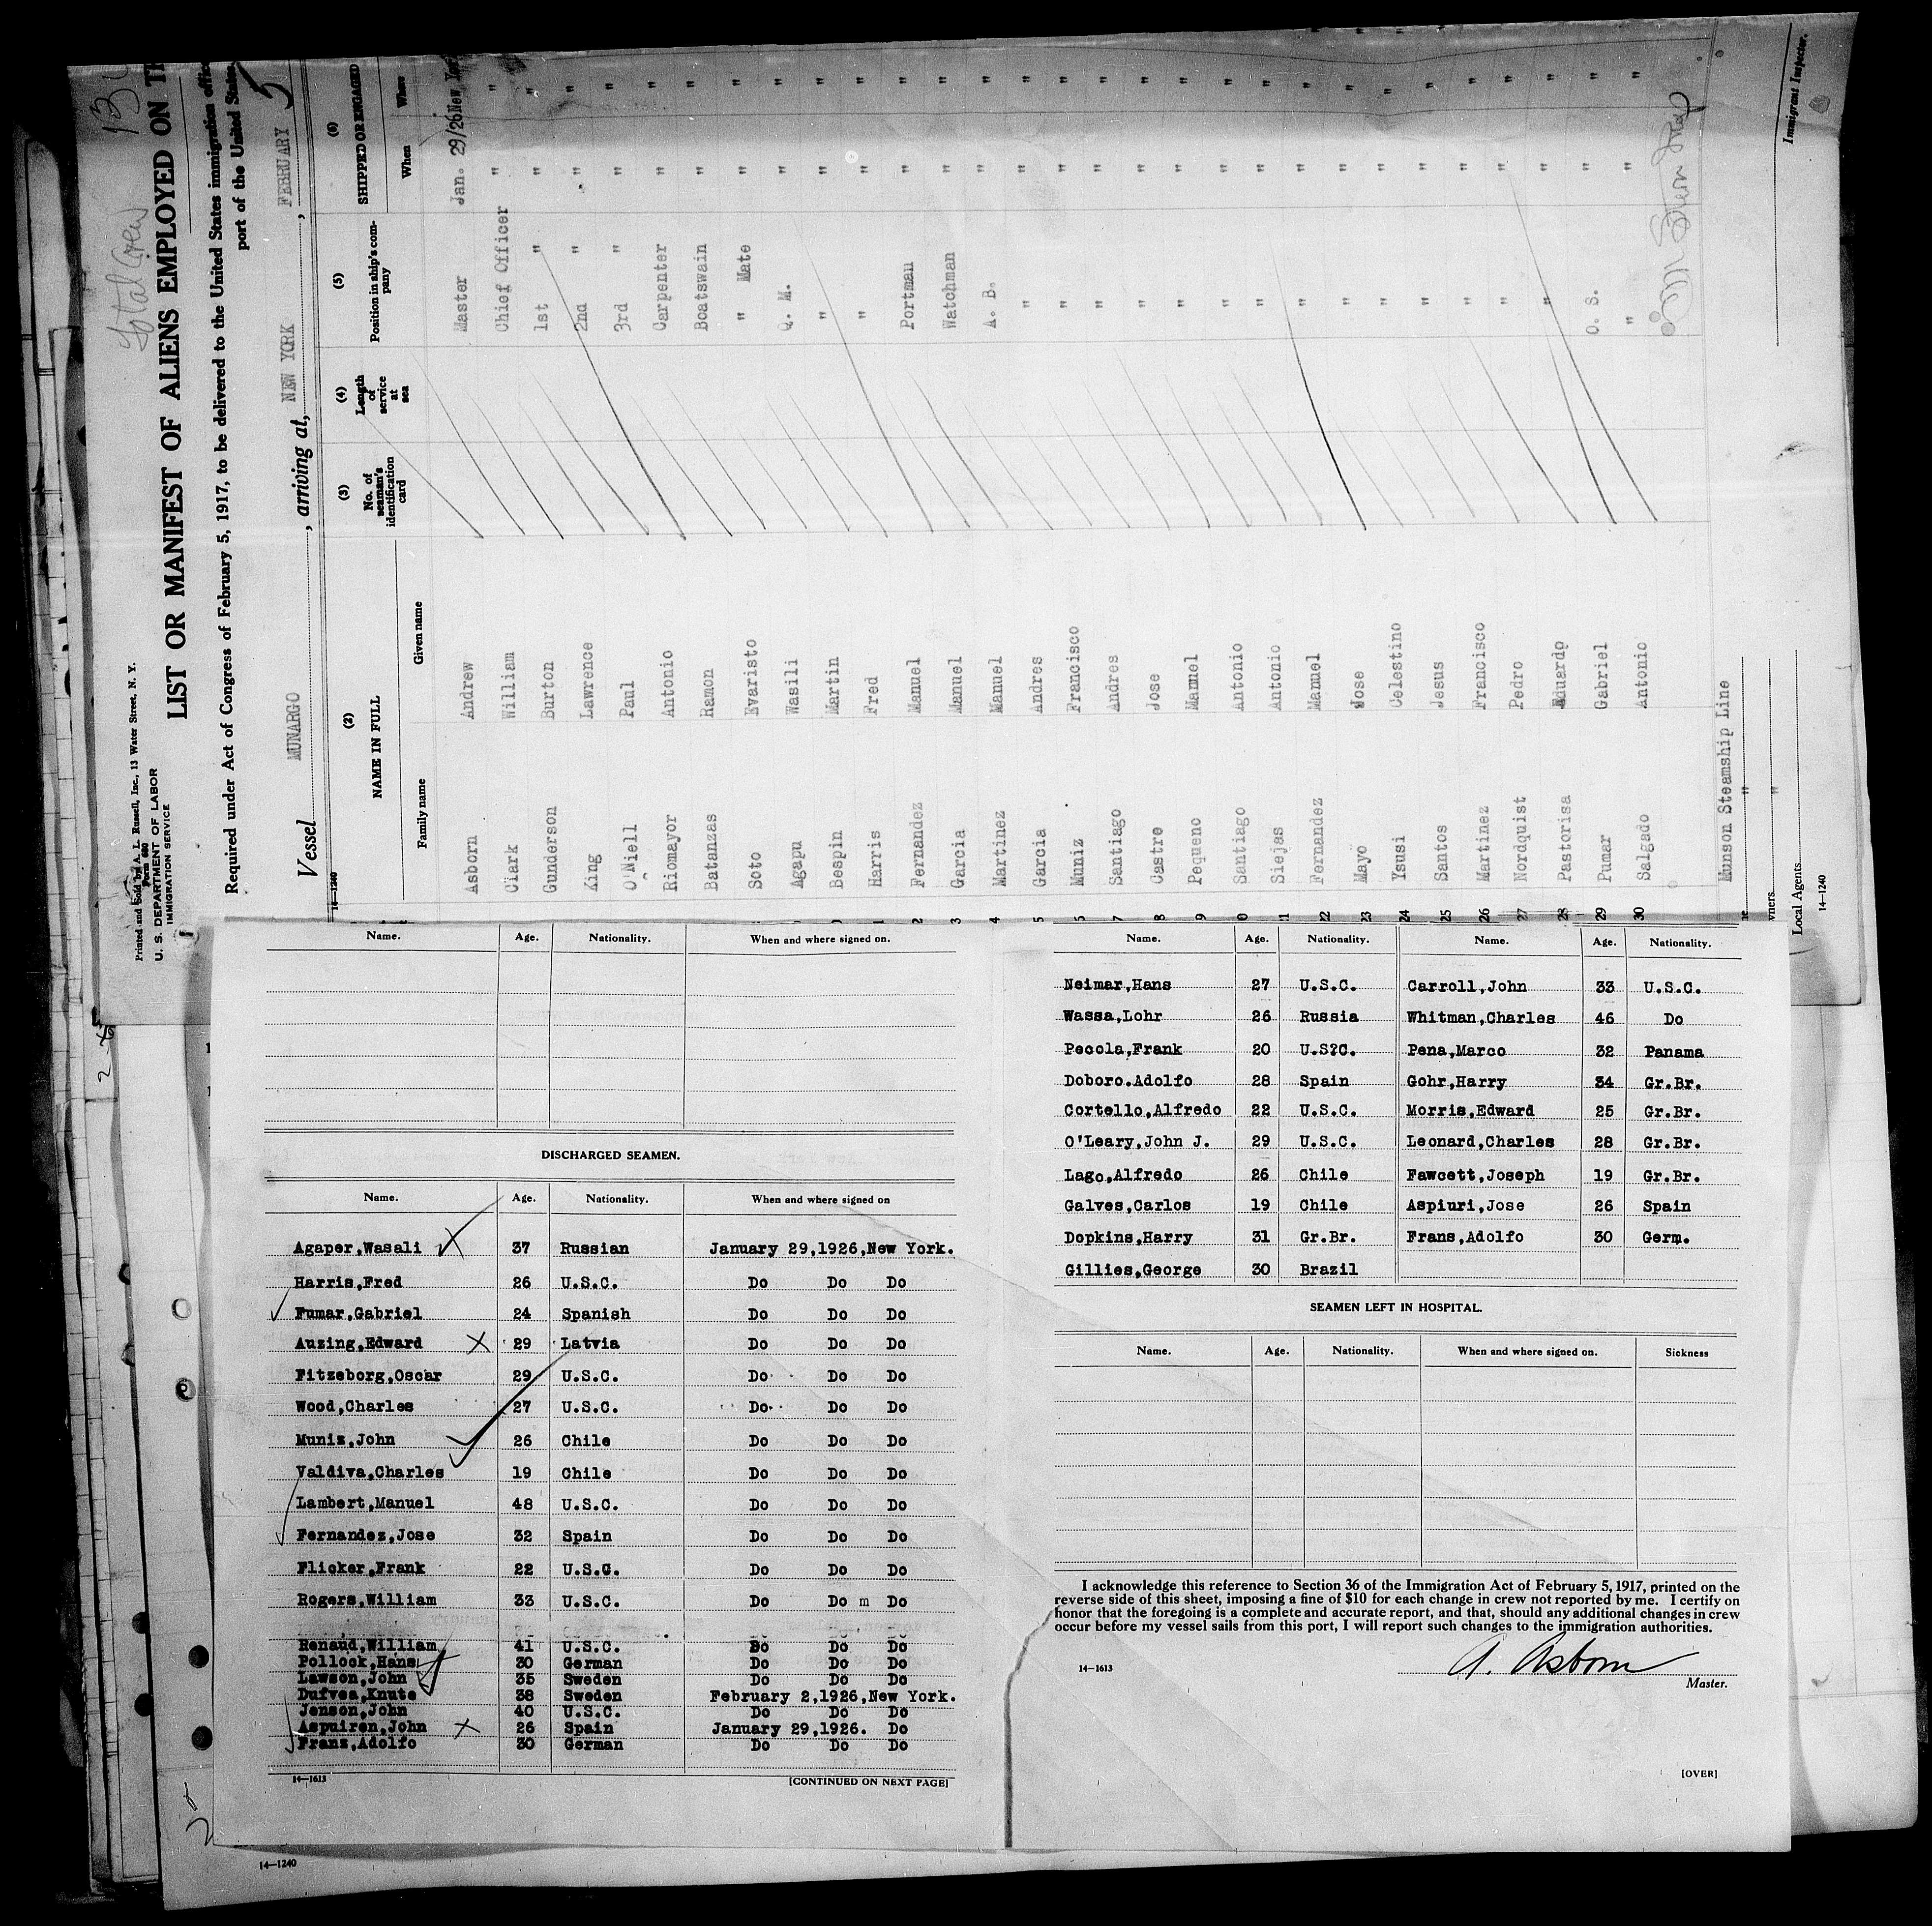 Total Crew 13
Printed and Sold by A. L. Russell, Inc., 13 Water Street, N. Y.
Form 680
U. S. DEPARTMENT OF LABOR
IMMIGRATION SERVICE
LIST OR MANIFEST OF ALIENS EMPLOYED ON
Required under Act of Congress of February 5, 1917, to be delivered to the United States immigration
port of the United States
5
Vessel MUNARGO, arriving at, NEW YORK, FEBRUARY
14-1240
(2) (3) (4) (5) (6)
NAME IN FULL No. of seaman's identification card Length of service at sea Position in ship's company SHIPPED OR ENGAGED
Family name Given name When Where
Asborn Andrew Master Jan. 29/26 New York
Clark William Chief Officer " "
Gunderson Burton 1st " " "
King Lawrence 2nd " " "
O'Niell Paul 3rd " " "
Riomayor Antonio Carpenter " "
Batanzas Ramon Boatswain " "
Soto Evaristo " Mate " "
Agapu Wasili Q. M. " "
Bespin Martin " " "
1 Harris Fred " " "
2 Fernandez Manuel Portman " "
3 Garcia Manuel Watchman " "
4 Martinez Manuel A. B. " "
5 Garcia Andres " " "
6 Muniz Francisco " " "
7 Santiago Andres " " "
8 Castre Jose " " "
9 Pequeno Manuel " " "
0 Santiago Antonio " " "
21 Siejas Antonio " " "
22 Fernandez Manuel " " "
23 Mayo Jose " " "
24 Ysusi Celestino " " "
25 Santos Jesus " " "
26 Martinez Francisco " " "
27 Nordquist Pedro " " "
28 Pastorisa Eduardo " " "
29 Pumar Gabriel O. S. " "
30 Salgado Antonio " " "
Munson Steamship Line
"
wners "
Local Agents
14-1240
Immigrant Inspector.
Name. Age. Nationality. When and where signed on.
DISCHARGED SEAMEN.
Name. Age. Nationality. When and where signed on
Agaper,Wasali 37 Russian January 29,1926,New York.
Harris,Fred 26 U.S.C. Do Do Do
Fumar,Gabriel 24 Spanish Do Do Do
Auzing,Edward X 29 Latvia Do Do Do
Fitzeborg,Oscar 29 U.S.C. Do Do Do
Wood,Charles 27 U.S.C. Do Do Do
Muniz,John 26 Chile Do Do Do
Valdiva,Charles 19 Chile Do Do Do
Lambert,Manuel 48 U.S.C. Do Do Do
Fernandez,Jose 32 Spain Do Do Do
Flicker,Frank 22 U.S.C. Do Do Do
Rogers,William 33 U.S.C. Do Do m Do
Renaud,William 41 U.S.C. Do Do Do
Pollock,Hans 30 German Do Do Do
Lawson,John 35 Sweden Do Do Do
Dufvea,Knute 38 Sweden February 2,1926,New York.
Jenson,John 40 U.S.C. Do Do Do
Aspuiren,John X 26 Spain January 29,1926. Do
Franz,Adolfo 30 German Do Do Do
14—1613 [CONTINUED ON NEXT PAGE]
14—1240
Name. Age. Nationality. Name. Age. Nationality.
Neimar,Hans 27 U.S.C. Carroll,John 33 U.S.C.
Wassa,Lohr 26 Russia Whitman,Charles 46 Do
Pecola,Frank 20 U.S?C. Pena,Marco 32 Panama
Doboro.Adolfo 28 Spain Gohr,Harry 34 Gr.Br.
Cortello,Alfredo 22 U.S.C. Morris,Edward 25 Gr.Br.
O'Leary,John J. 29 U.S.C. Leonard,Charles 28 Gr.Br.
Lago,Alfredo 26 Chile Fawcett,Joseph 19 Gr.Br.
Galves,Carlos 19 Chile Aspiuri,Jose 26 Spain
Dopkins,Harry 31 Gr.Br. Frans,Adolfo 30 Germ.
Gillies,George 30 Brazil
SEAMEN LEFT IN HOSPITAL.
Name. Age. Nationality. When and where signed on. Sickness
I acknowledge this reference to Section 36 of the Immigration Act of February 5, 1917, printed on the
reverse side of this sheet, imposing a fine of $10 for each change in crew not reported by me. I certify on
honor that the foregoing is a complete and accurate report, and that, should any additional changes in crew
occur before my vessel sails from this port, I will report such changes to the immigration authorities.
A. Asborn
14—1613 Master.
[OVER]